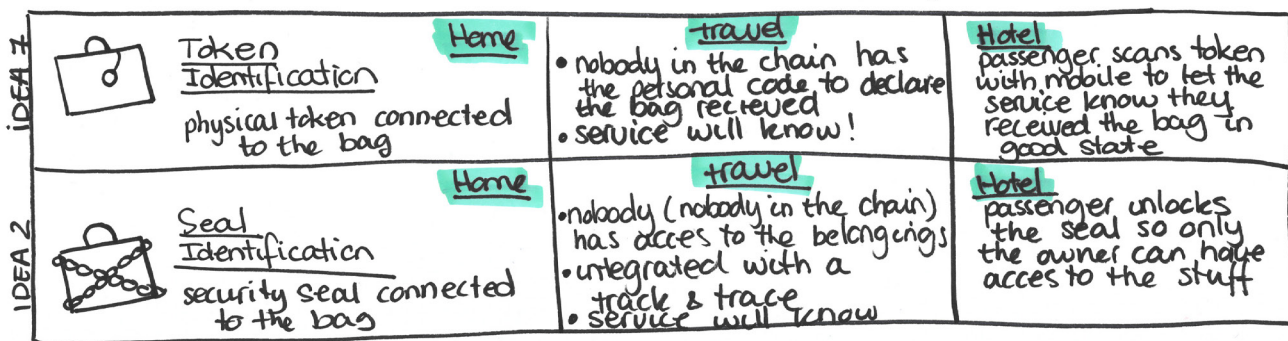 IDEA 7
Token
Identification
physical token connected
to the bag
Home
travel
• nobody in the chain has
the personal code to declare
the bag recieved
• service will know!
Hotel
passenger scans token
with mobile to let the
service know they
received the bag in
good state
IDEA 2
Seal
Identification
security seal connected
to the bag
Home
travel
• nobody (nobody in the chain)
has acces to the belongings
• integrated with a
track & trace
• service will know
Hotel
passenger unlocks
the seal so only
the owner can have
acces to the stuff